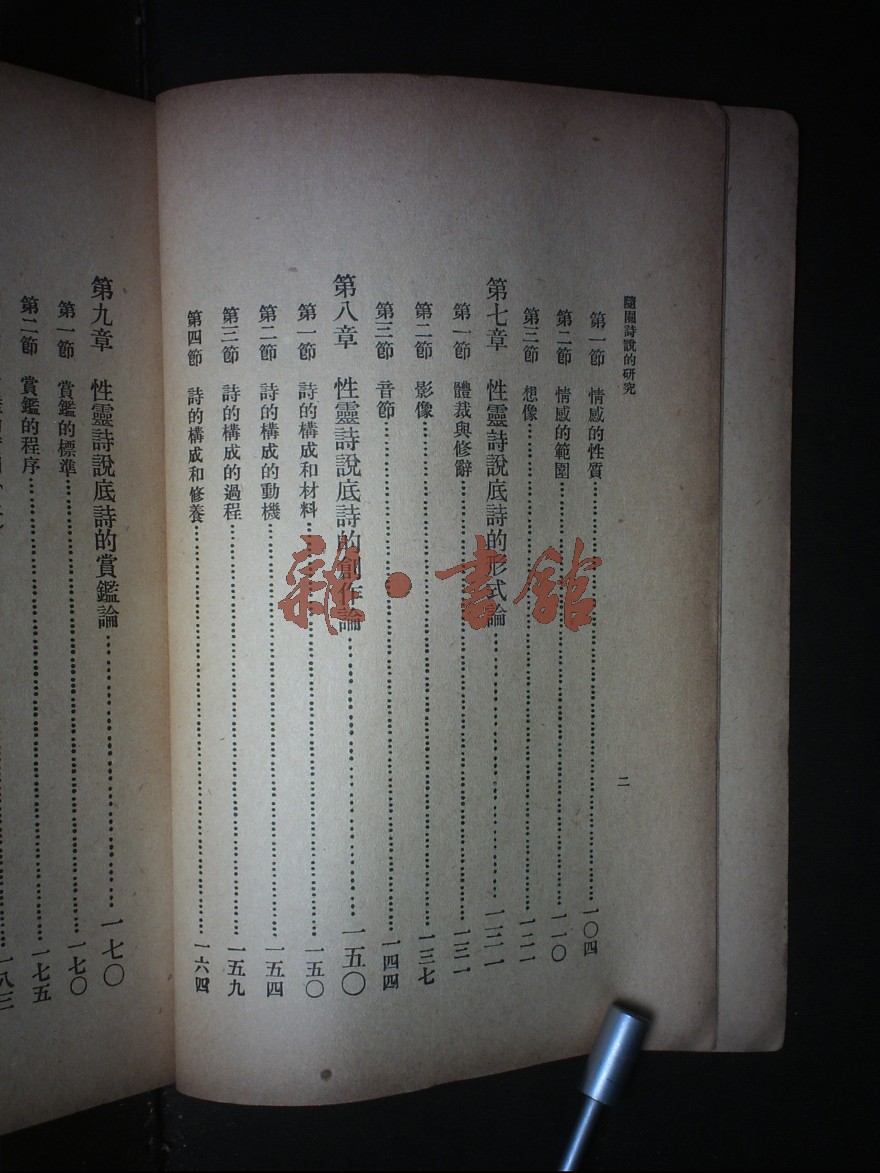 隨園詩說的研究
二
第一節 情感的性質……一〇四
第二節 情感的範圍……一一〇
第三節 想像……一二一
第七章 性靈詩說底詩的形式論……一三一
第一節 體裁與修辭……一三一
第二節 影像……一三七
第三節 音節……一四四
第八章 性靈詩說底詩的創作論……一五〇
第一節 詩的構成和材料……一五〇
第二節 詩的構成的動機……一五四
第三節 詩的構成的過程……一五九
第四節 詩的構成和修養……一六四
第九章 性靈詩說底詩的賞鑑論……一七〇
第一節 賞鑑的標準……一七〇
第二節 賞鑑的程序……一七五
雜·書館